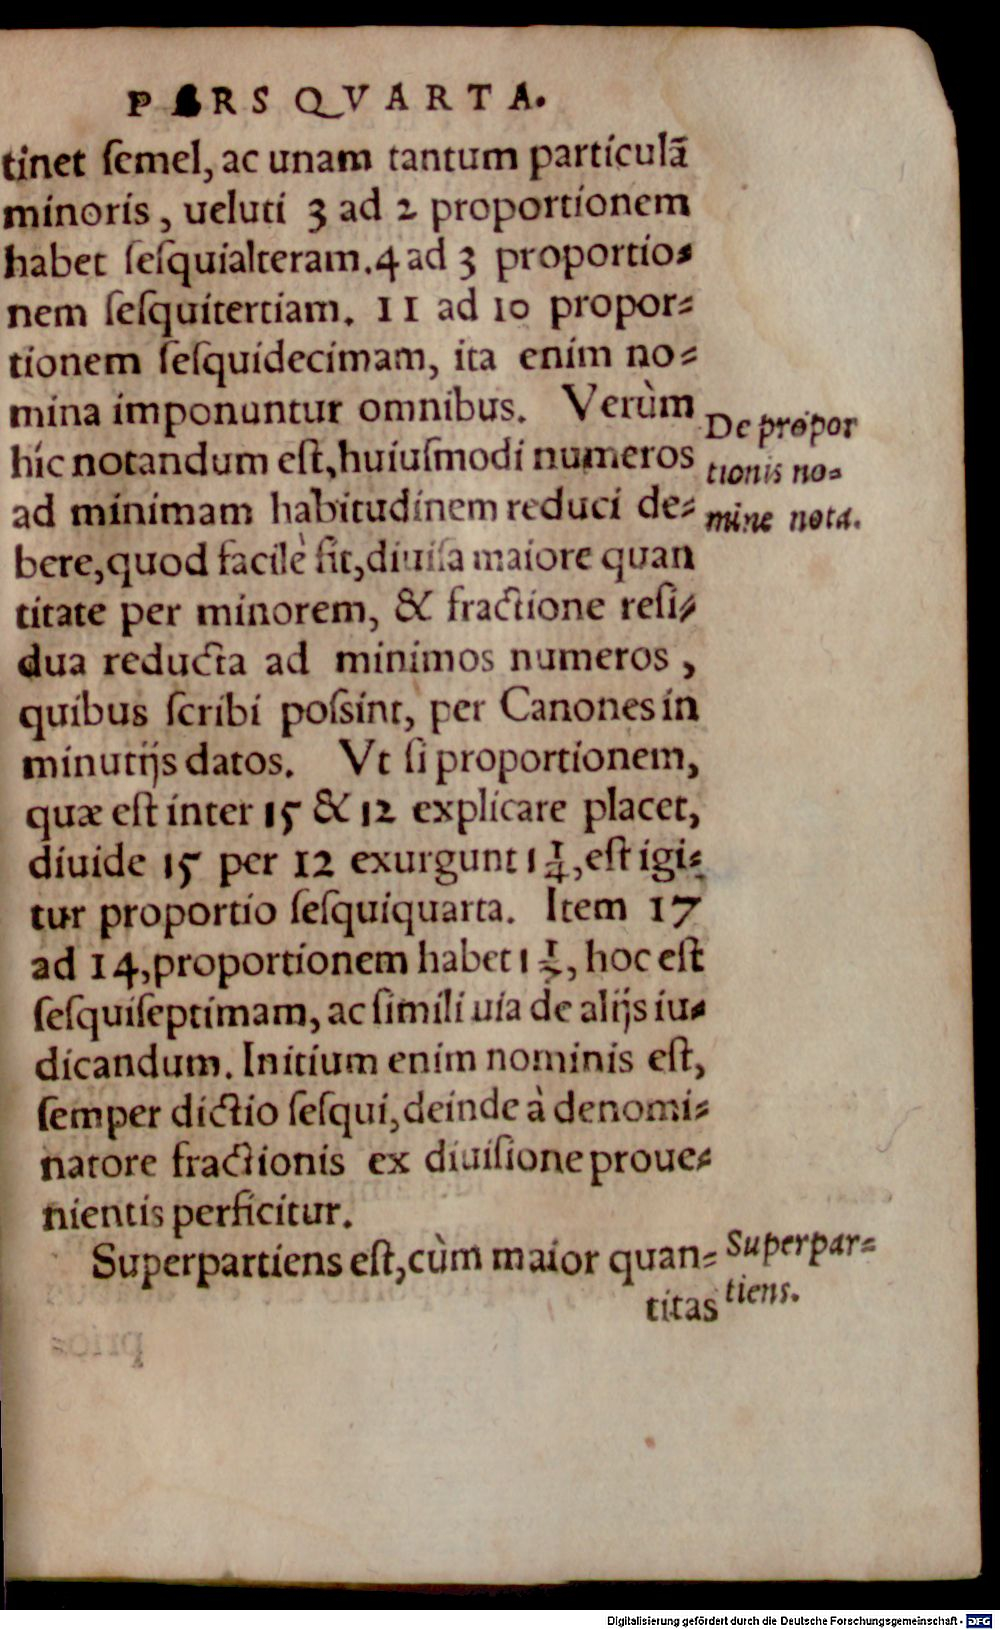 PARS QVARTA.
tinet ſemel, ac unam tantum particulã
minoris, ueluti 3 ad 2 proportionem
habet ſeſquialteram. 4 ad 3 proportio⸗
nem ſeſquitertiam. 11 ad 10 propor⸗
tionem ſeſquidecimam, ita enim no⸗
mina imponuntur omnibus. Verùm
hîc notandum eſt, huiuſmodi numeros
ad minimam habitudinem reduci de⸗
bere, quod facilè fit, diuiſa maiore quan
titate per minorem, & fractione reſi⸗
dua reducta ad minimos numeros,
quibus ſcribi poſsint, per Canones in
minutijs datos. Vt ſi proportionem,
quæ eſt inter 15 & 12 explicare placet,
diuide 15 per 12 exurgunt 1 1/4, eſt igi⸗
tur proportio ſeſquiquarta. Item 17
ad 14, proportionem habet 1 1/7, hoc eſt
ſeſquiſeptimam, ac ſimili uia de alijs iu⸗
dicandum. Initium enim nominis eſt,
ſemper dictio ſeſqui, deinde à denomi⸗
natore fractionis ex diuiſione proue⸗
nientis perficitur.
Superpartiens eſt, cùm maior quan⸗
titas
De propor
tionis no⸗
mine nota.
Superpar⸗
tiens.
Digitalisierung gefördert durch die Deutsche Forschungsgemeinschaft - DFG